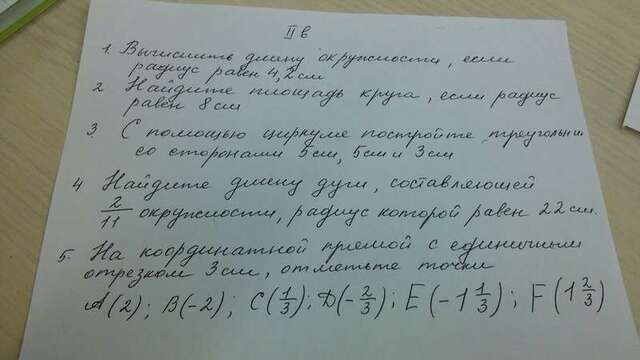 II в
1. Вычислить длину окружности, если
радиус равен 4,2 см
2 Найдите площадь круга, если радиус
равен 8 см
3. С помощью циркуля постройте треугольник
со сторонами 5 см, 5 см и 3 см
4 Найдите длину дуги, составляющей
2/11 окружности, радиус которой равен 22 см.
5. На координатной прямой с единичным
отрезком 3 см, отметьте точки
А(2); В(-2); С(1/3); D(-2/3); Е(-1 1/3); F(1 2/3)